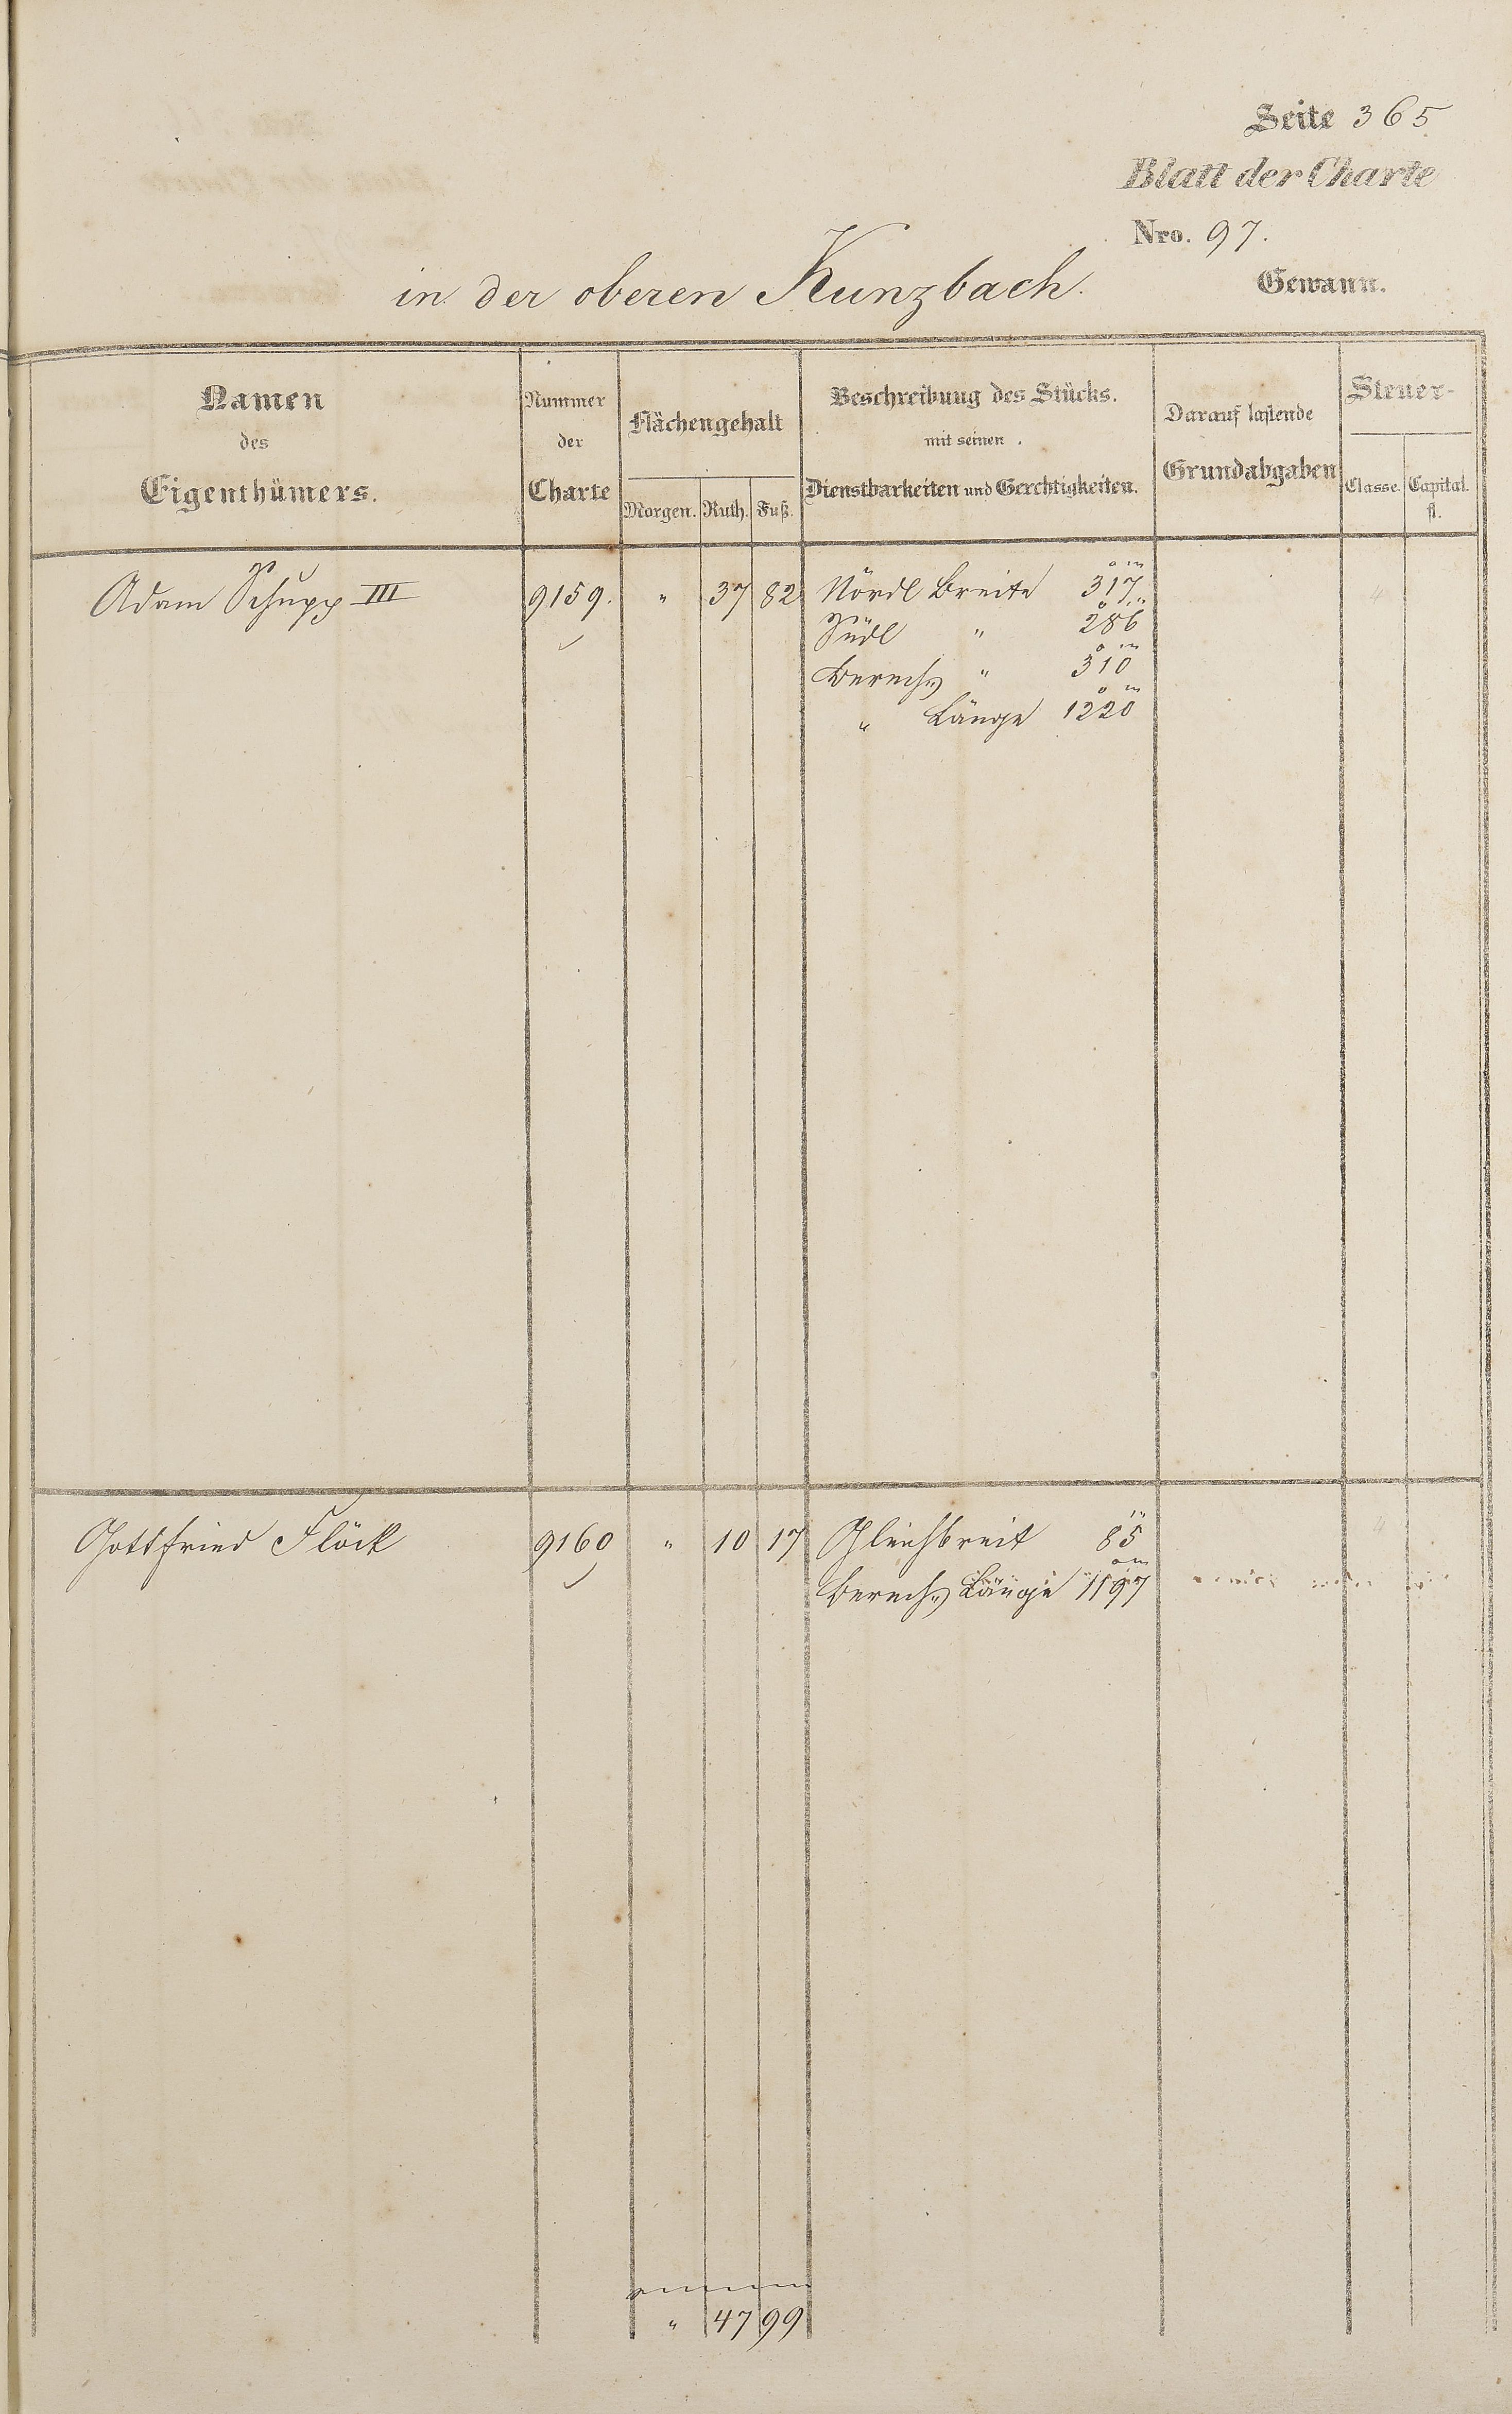 Seite 365
Blatt der Charte
Nro. 97.
in der oberen Kunzbach. Gewann.
Namen des Eigenthümers.
Nummer der Charte
Flächengehalt
Morgen. Ruth. Fuß.
Beschreibung des Stücks.
mit seinen
Dienstbarkeiten und Gerechtigkeiten.
Darauf lastende
Grundabgaben
Steuer-
Classe. Capital.
fl.
Adam Schupp III 9159. " 37 82 Nördl Breite 317
Südl " 286
berech " 310
" Länge 1220
4
Gottfried Flöck 9160 " 10 17 Gleichbreit 85
berech Länge 1197
4
" 47 99